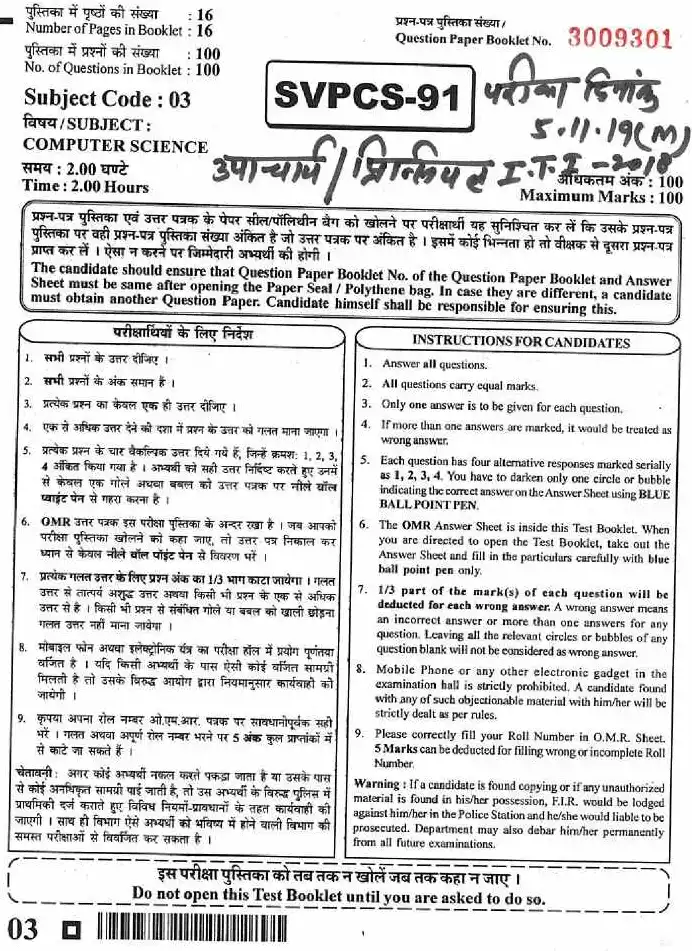 पुस्तिका में पृष्ठों की संख्या : 16
Number of Pages in Booklet : 16
पुस्तिका में प्रश्नों की संख्या : 100
No. of Questions in Booklet : 100
प्रश्न-पत्र पुस्तिका संख्या /
Question Paper Booklet No. 3009301
Subject Code : 03
विषय / SUBJECT :
COMPUTER SCIENCE
समय : 2.00 घण्टे
Time : 2.00 Hours
SVPCS-91
परीक्षा दिनांक
5.11.19(M)
उपाचार्य / प्रिन्सिपल I.T.I-2018
अधिकतम अंक : 100
Maximum Marks : 100
प्रश्न-पत्र पुस्तिका एवं उत्तर पत्रक के पेपर सील/पॉलिथीन बैग को खोलने पर परीक्षार्थी यह सुनिश्चित कर लें कि उसके प्रश्न-पत्र
पुस्तिका पर वही प्रश्न-पत्र पुस्तिका संख्या अंकित है जो उत्तर पत्रक पर अंकित है । इसमें कोई भिन्नता हो तो वीक्षक से दूसरा प्रश्न-पत्र
प्राप्त कर लें । ऐसा न करने पर जिम्मेदारी अभ्यर्थी की होगी ।
The candidate should ensure that Question Paper Booklet No. of the Question Paper Booklet and Answer
Sheet must be same after opening the Paper Seal / Polythene bag. In case they are different, a candidate
must obtain another Question Paper. Candidate himself shall be responsible for ensuring this.
परीक्षार्थियों के लिए निर्देश
1. सभी प्रश्नों के उत्तर दीजिए ।
2. सभी प्रश्नों के अंक समान हैं ।
3. प्रत्येक प्रश्न का केवल एक ही उत्तर दीजिए ।
4. एक से अधिक उत्तर देने की दशा में प्रश्न के उत्तर को गलत माना जाएगा ।
5. प्रत्येक प्रश्न के चार वैकल्पिक उत्तर दिये गये हैं, जिन्हें क्रमशः 1, 2, 3,
4 अंकित किया गया है । अभ्यर्थी को सही उत्तर निर्दिष्ट करते हुए उनमें
से केवल एक गोले अथवा बबल को उत्तर पत्रक पर नीले बॉल
प्वाइंट पेन से गहरा करना है ।
6. OMR उत्तर पत्रक इस परीक्षा पुस्तिका के अन्दर रखा है । जब आपको
परीक्षा पुस्तिका खोलने को कहा जाए, तो उत्तर पत्र निकाल कर
ध्यान से केवल नीले बॉल पॉइंट पेन से विवरण भरें ।
7. प्रत्येक गलत उत्तर के लिए प्रश्न अंक का 1/3 भाग काटा जायेगा । गलत
उत्तर से तात्पर्य अशुद्ध उत्तर अथवा किसी भी प्रश्न के एक से अधिक
उत्तर से है । किसी भी प्रश्न से संबंधित गोले या बबल को खाली छोड़ना
गलत उत्तर नहीं माना जायेगा ।
8. मोबाइल फोन अथवा इलेक्ट्रोनिक यंत्र का परीक्षा हॉल में प्रयोग पूर्णतया
वर्जित है । यदि किसी अभ्यर्थी के पास ऐसी कोई वर्जित सामग्री
मिलती है तो उसके विरुद्ध आयोग द्वारा नियमानुसार कार्यवाही की
जायेगी ।
9. कृपया अपना रोल नम्बर ओ.एम.आर. पत्रक पर सावधानीपूर्वक सही
भरें । गलत अथवा अपूर्ण रोल नम्बर भरने पर 5 अंक कुल प्राप्तांकों में
से काटे जा सकते हैं ।
चेतावनी : अगर कोई अभ्यर्थी नकल करते पकड़ा जाता है या उसके पास
से कोई अनधिकृत सामग्री पाई जाती है, तो उस अभ्यर्थी के विरुद्ध पुलिस में
प्राथमिकी दर्ज कराते हुए विविध नियमों-प्रावधानों के तहत कार्यवाही की
जाएगी । साथ ही विभाग ऐसे अभ्यर्थी को भविष्य में होने वाली विभाग की
समस्त परीक्षाओं से विवर्जित कर सकता है ।
INSTRUCTIONS FOR CANDIDATES
1. Answer all questions.
2. All questions carry equal marks.
3. Only one answer is to be given for each question.
4. If more than one answers are marked, it would be treated as
wrong answer.
5. Each question has four alternative responses marked serially
as 1, 2, 3, 4. You have to darken only one circle or bubble
indicating the correct answer on the Answer Sheet using BLUE
BALL POINT PEN.
6. The OMR Answer Sheet is inside this Test Booklet. When
you are directed to open the Test Booklet, take out the
Answer Sheet and fill in the particulars carefully with blue
ball point pen only.
7. 1/3 part of the mark(s) of each question will be
deducted for each wrong answer. A wrong answer means
an incorrect answer or more than one answers for any
question. Leaving all the relevant circles or bubbles of any
question blank will not be considered as wrong answer.
8. Mobile Phone or any other electronic gadget in the
examination hall is strictly prohibited. A candidate found
with any of such objectionable material with him/her will be
strictly dealt as per rules.
9. Please correctly fill your Roll Number in O.M.R. Sheet.
5 Marks can be deducted for filling wrong or incomplete Roll
Number.
Warning : If a candidate is found copying or if any unauthorized
material is found in his/her possession, F.I.R. would be lodged
against him/her in the Police Station and he/she would liable to be
prosecuted. Department may also debar him/her permanently
from all future examinations.
इस परीक्षा पुस्तिका को तब तक न खोलें जब तक कहा न जाए ।
Do not open this Test Booklet until you are asked to do so.
03